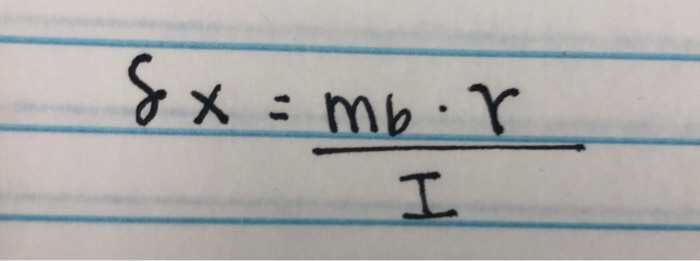 δx = mb · r
I